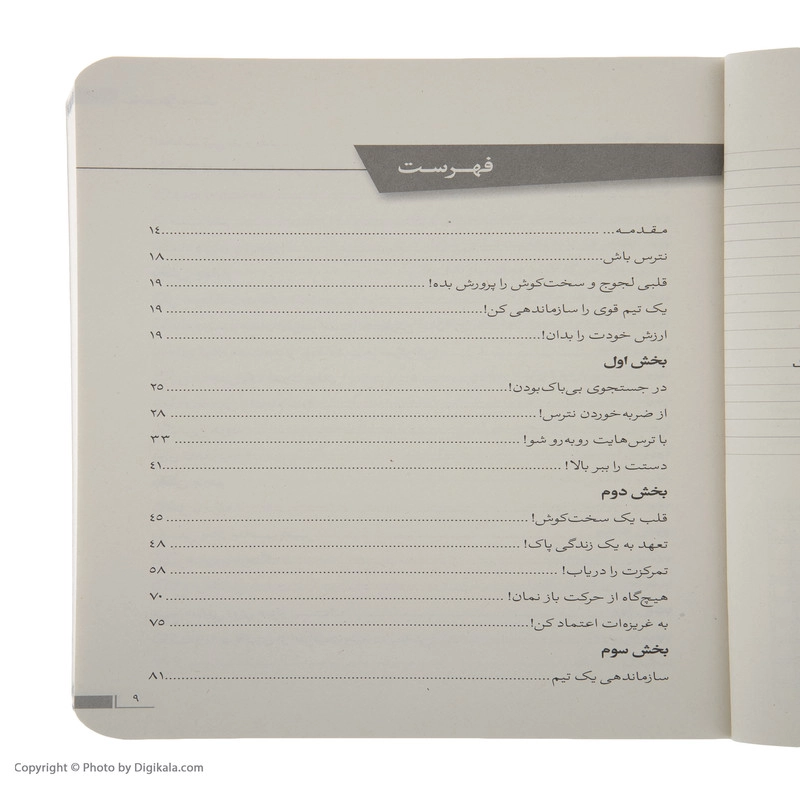 فهرست
مقدمه... ........ ۱٤
نترس باش........ ۱۸
قلبی لجوج و سخت‌کوش را پرورش بده! ........ ۱۹
یک تیم قوی را سازماندهی کن!........ ۱۹
ارزش خودت را بدان!........ ۱۹
بخش اول
در جستجوی بی‌باک‌بودن!........ ۲٥
از ضربه‌خوردن نترس!........ ۲۸
با ترس‌هایت روبه‌رو شو! ........ ۳۳
دستت را ببر بالا! ........٤۱
بخش دوم
قلب یک سخت‌کوش! ........ ٤٥
تعهد به یک زندگی پاک! ........ ٤۸
تمرکزت را دریاب! ........ ٥۸
هیچ‌گاه از حرکت باز نمان! ........ ۷۰
به غریزه‌ات اعتماد کن!........ ۷٥
بخش سوم
سازماندهی یک تیم........۸۱
۹
Copyright © Photo by Digikala.com